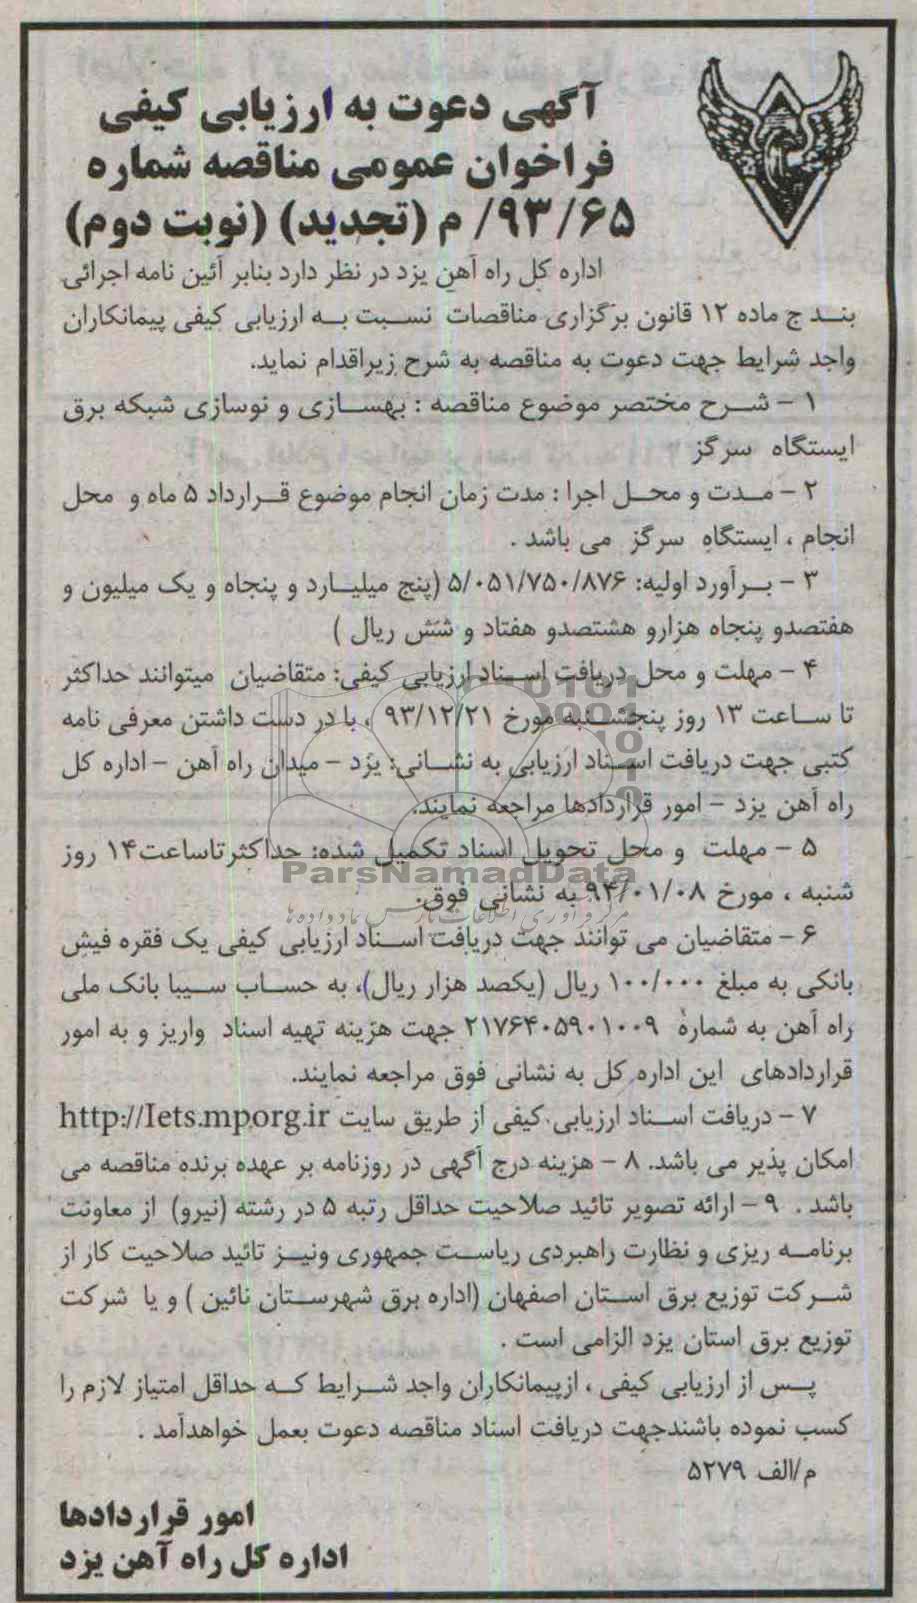 آگهی دعوت به ارزیابی کیفی
فراخوان عمومی مناقصه شماره
۹۳/۶۵/ م (تجدید) (نوبت دوم)
اداره کل راه آهن یزد در نظر دارد بنابر آئین نامه اجرائی
بند ج ماده ۱۲ قانون برگزاری مناقصات نسبت به ارزیابی کیفی پیمانکاران
واجد شرایط جهت دعوت به مناقصه به شرح زیراقدام نماید.
۱ - شرح مختصر موضوع مناقصه : بهسازی و نوسازی شبکه برق
ایستگاه سرگز
۲ - مدت و محل اجرا : مدت زمان انجام موضوع قرارداد ۵ ماه و محل
انجام ، ایستگاه سرگز می باشد .
۳ - برآورد اولیه: ۵/۰۵۱/۷۵۰/۸۷۶ (پنج میلیارد و پنجاه و یک میلیون و
هفتصدو پنجاه هزارو هشتصدو هفتاد و شش ریال )
۴ - مهلت و محل دریافت اسناد ارزیابی کیفی: متقاضیان میتوانند حداکثر
تا ساعت ۱۳ روز پنجشنبه مورخ ۹۳/۱۲/۲۱ ، با در دست داشتن معرفی نامه
کتبی جهت دریافت اسناد ارزیابی به نشانی: یزد - میدان راه آهن - اداره کل
راه آهن یزد - امور قراردادها مراجعه نمایند.
۵ - مهلت و محل تحویل اسناد تکمیل شده: حداکثرتاساعت۱۴ روز
ParsNamadData
شنبه ، مورخ ۹۴/۰۱/۰۸ به نشانی فوق.
مرکز فرآوری اطلاعات پارس نماد داده ها
۶ - متقاضیان می توانند جهت دریافت اسناد ارزیابی کیفی یک فقره فیش
بانکی به مبلغ ۱۰۰/۰۰۰ ریال (یکصد هزار ریال)، به حساب سیبا بانک ملی
راه آهن به شماره ۲۱۷۶۴۰۵۹۰۱۰۰۹ جهت هزینه تهیه اسناد واریز و به امور
قراردادهای این اداره کل به نشانی فوق مراجعه نمایند.
۷ - دریافت اسناد ارزیابی کیفی از طریق سایت http://Iets.mporg.ir
امکان پذیر می باشد. ۸ - هزینه درج آگهی در روزنامه بر عهده برنده مناقصه می
باشد . ۹ - ارائه تصویر تائید صلاحیت حداقل رتبه ۵ در رشته (نیرو) از معاونت
برنامه ریزی و نظارت راهبردی ریاست جمهوری ونیز تائید صلاحیت کار از
شرکت توزیع برق استان اصفهان (اداره برق شهرستان نائین ) و یا شرکت
توزیع برق استان یزد الزامی است .
پس از ارزیابی کیفی ، ازپیمانکاران واجد شرایط که حداقل امتیاز لازم را
کسب نموده باشندجهت دریافت اسناد مناقصه دعوت بعمل خواهدآمد .
م/الف ۵۲۷۹
امور قراردادها
اداره کل راه آهن یزد